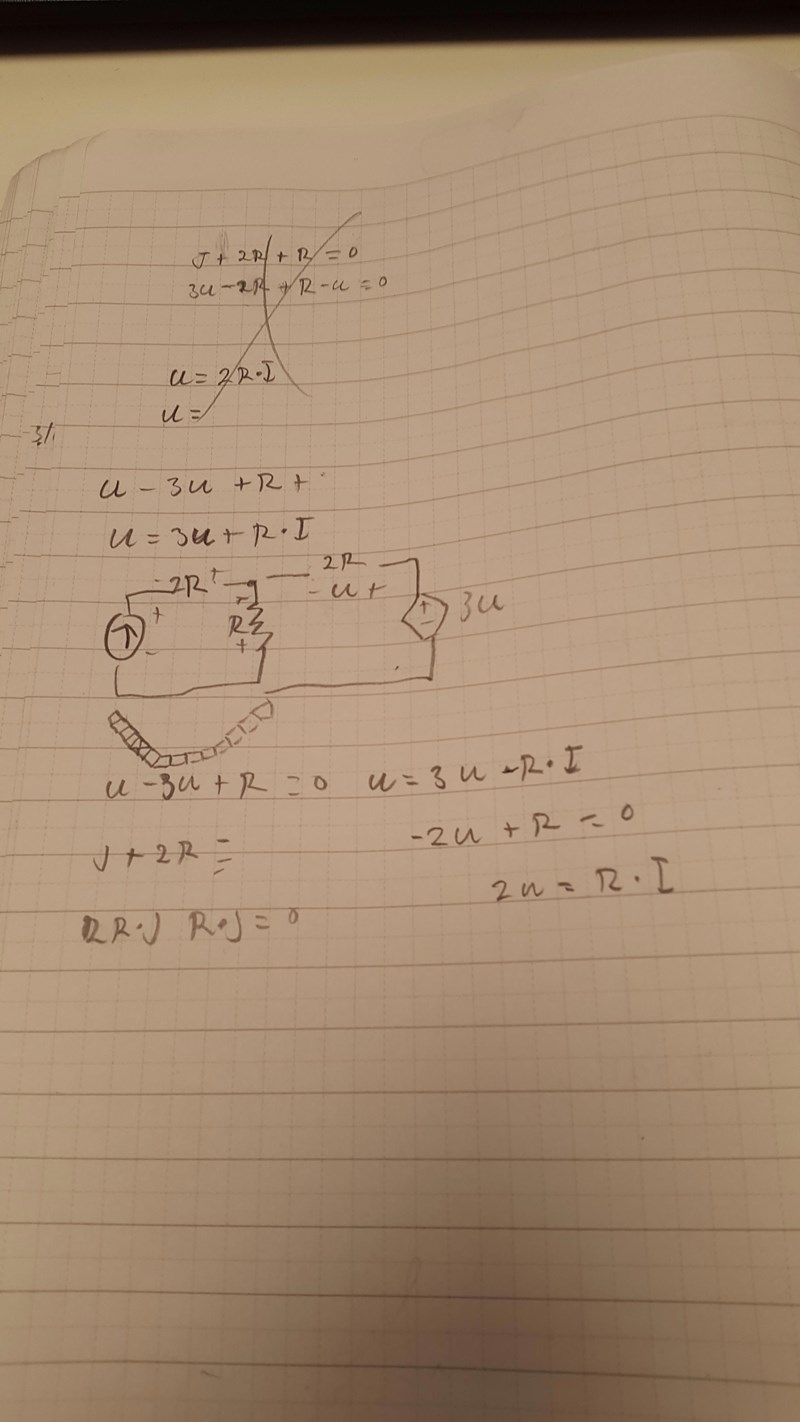 J + 2R + R = 0
3u - 2R + R - u = 0
u = 2R·I
u =
3/.
u - 3u + R +
u = 3u + R·I
2R
- 2R +
- u +
+
-
R
-
+
+
-
3u
u - 3u + R = 0
u = 3u - R·I
-2u + R = 0
J + 2R =
2u = R·I
2R·J R·J = 0